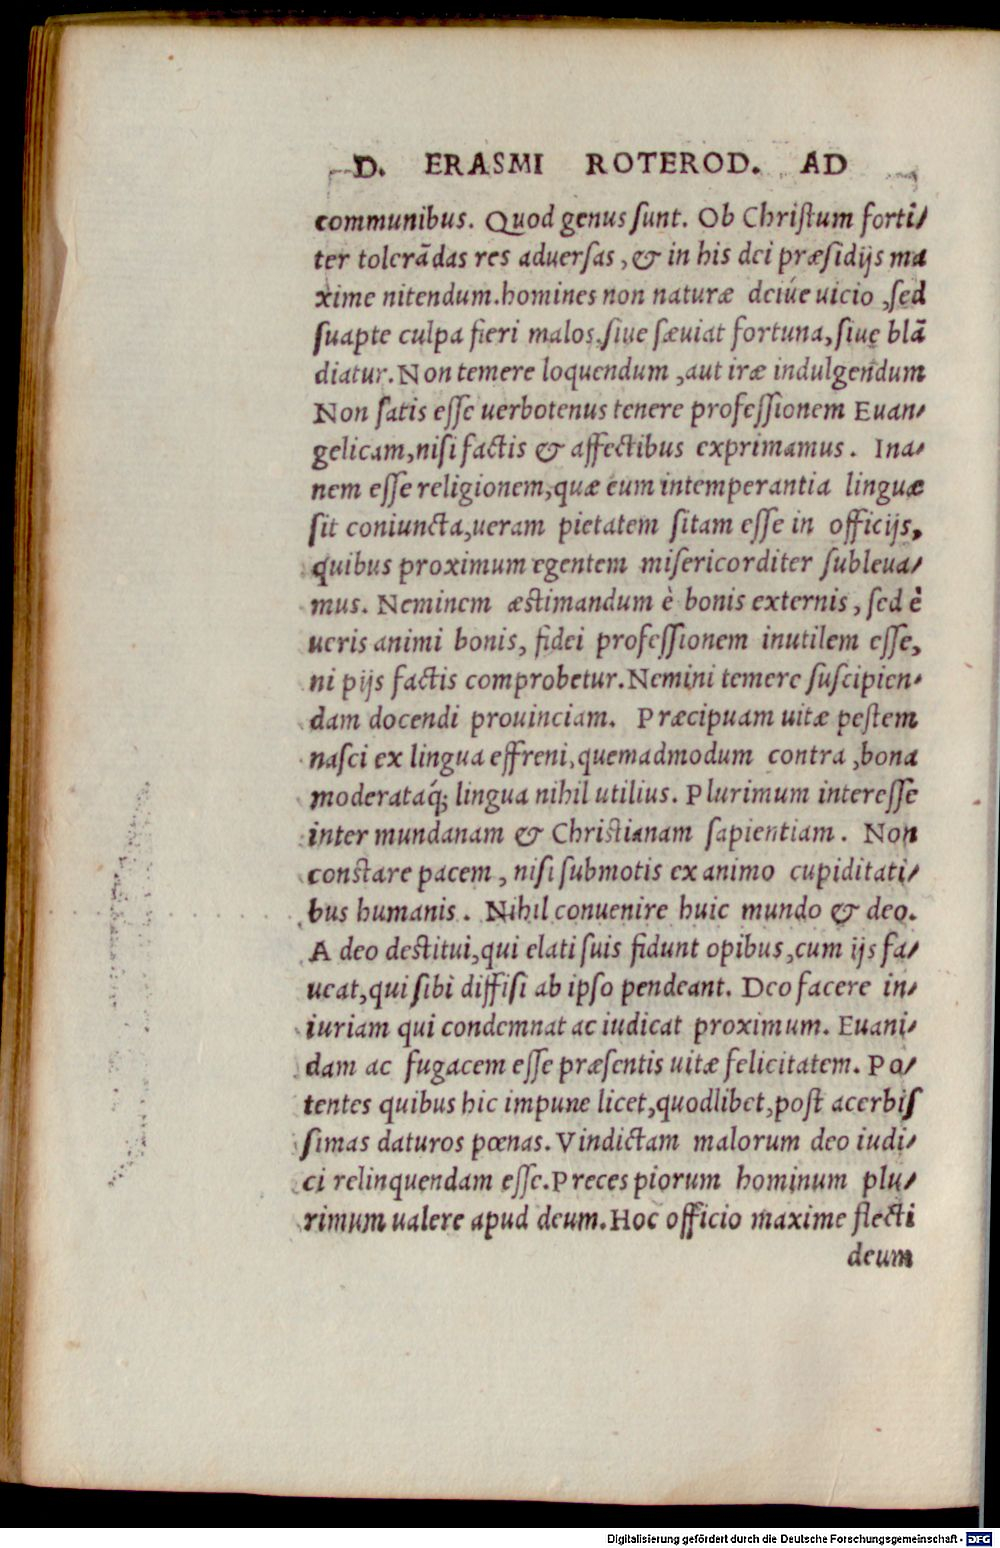 D. ERASMI ROTEROD. AD
communibus. Quod genus sunt. Ob Christum forti/
ter tolerãdas res aduersas, & in his dei præsidijs ma
xime nitendum. homines non naturæ deiúe uicio, sed
suapte culpa fieri malos, siue sæuiat fortuna, siue blã
diatur. Non temere loquendum, aut iræ indulgendum
Non satis esse uerbotenus tenere professionem Euan/
gelicam, nisi factis & affectibus exprimamus. Ina/
nem esse religionem, quæ cum intemperantia linguæ
sit coniuncta, ueram pietatem sitam esse in officijs,
quibus proximum egentem misericorditer subleua/
mus. Neminem æstimandum è bonis externis, sed è
ueris animi bonis, fidei professionem inutilem esse,
ni pijs factis comprobetur. Nemini temere suscipien/
dam docendi prouinciam. Præcipuam uitæ pestem
nasci ex lingua effreni, quemadmodum contra, bona
moderataq́; lingua nihil utilius. Plurimum interesse
inter mundanam & Christianam sapientiam. Non
constare pacem, nisi submotis ex animo cupiditati/
bus humanis. Nihil conuenire huic mundo & deo.
A deo destitui, qui elati suis fidunt opibus, cum ijs fa/
ueat, qui sibi diffisi ab ipso pendeant. Deo facere in/
iuriam qui condemnat ac iudicat proximum. Euani/
dam ac fugacem esse præsentis uitæ felicitatem. Po/
tentes quibus hic impune licet, quodlibet, post acerbis
simas daturos pœnas. Vindictam malorum deo iudi/
ci relinquendam esse. Preces piorum hominum plu/
rimum ualere apud deum. Hoc officio maxime flecti
deum
Digitalisierung gefördert durch die Deutsche Forschungsgemeinschaft - DFG